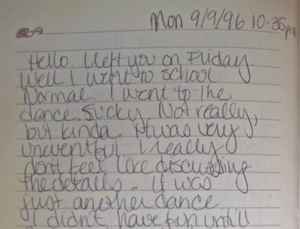 Mon 9/9/96 10:35pm
Hello. I left you on Friday.
Well I went to school.
Normal. I went to the
dance. Sucky. Not really,
but kinda. It was very
uneventful. I really
don't feel like discussing
the details. It was
just another dance.
I didn't have fun untill